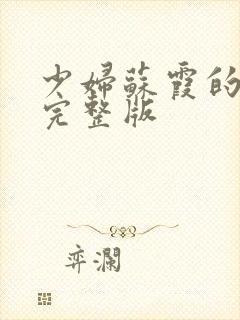 少婦蘇霞的
完整版
弈瀾